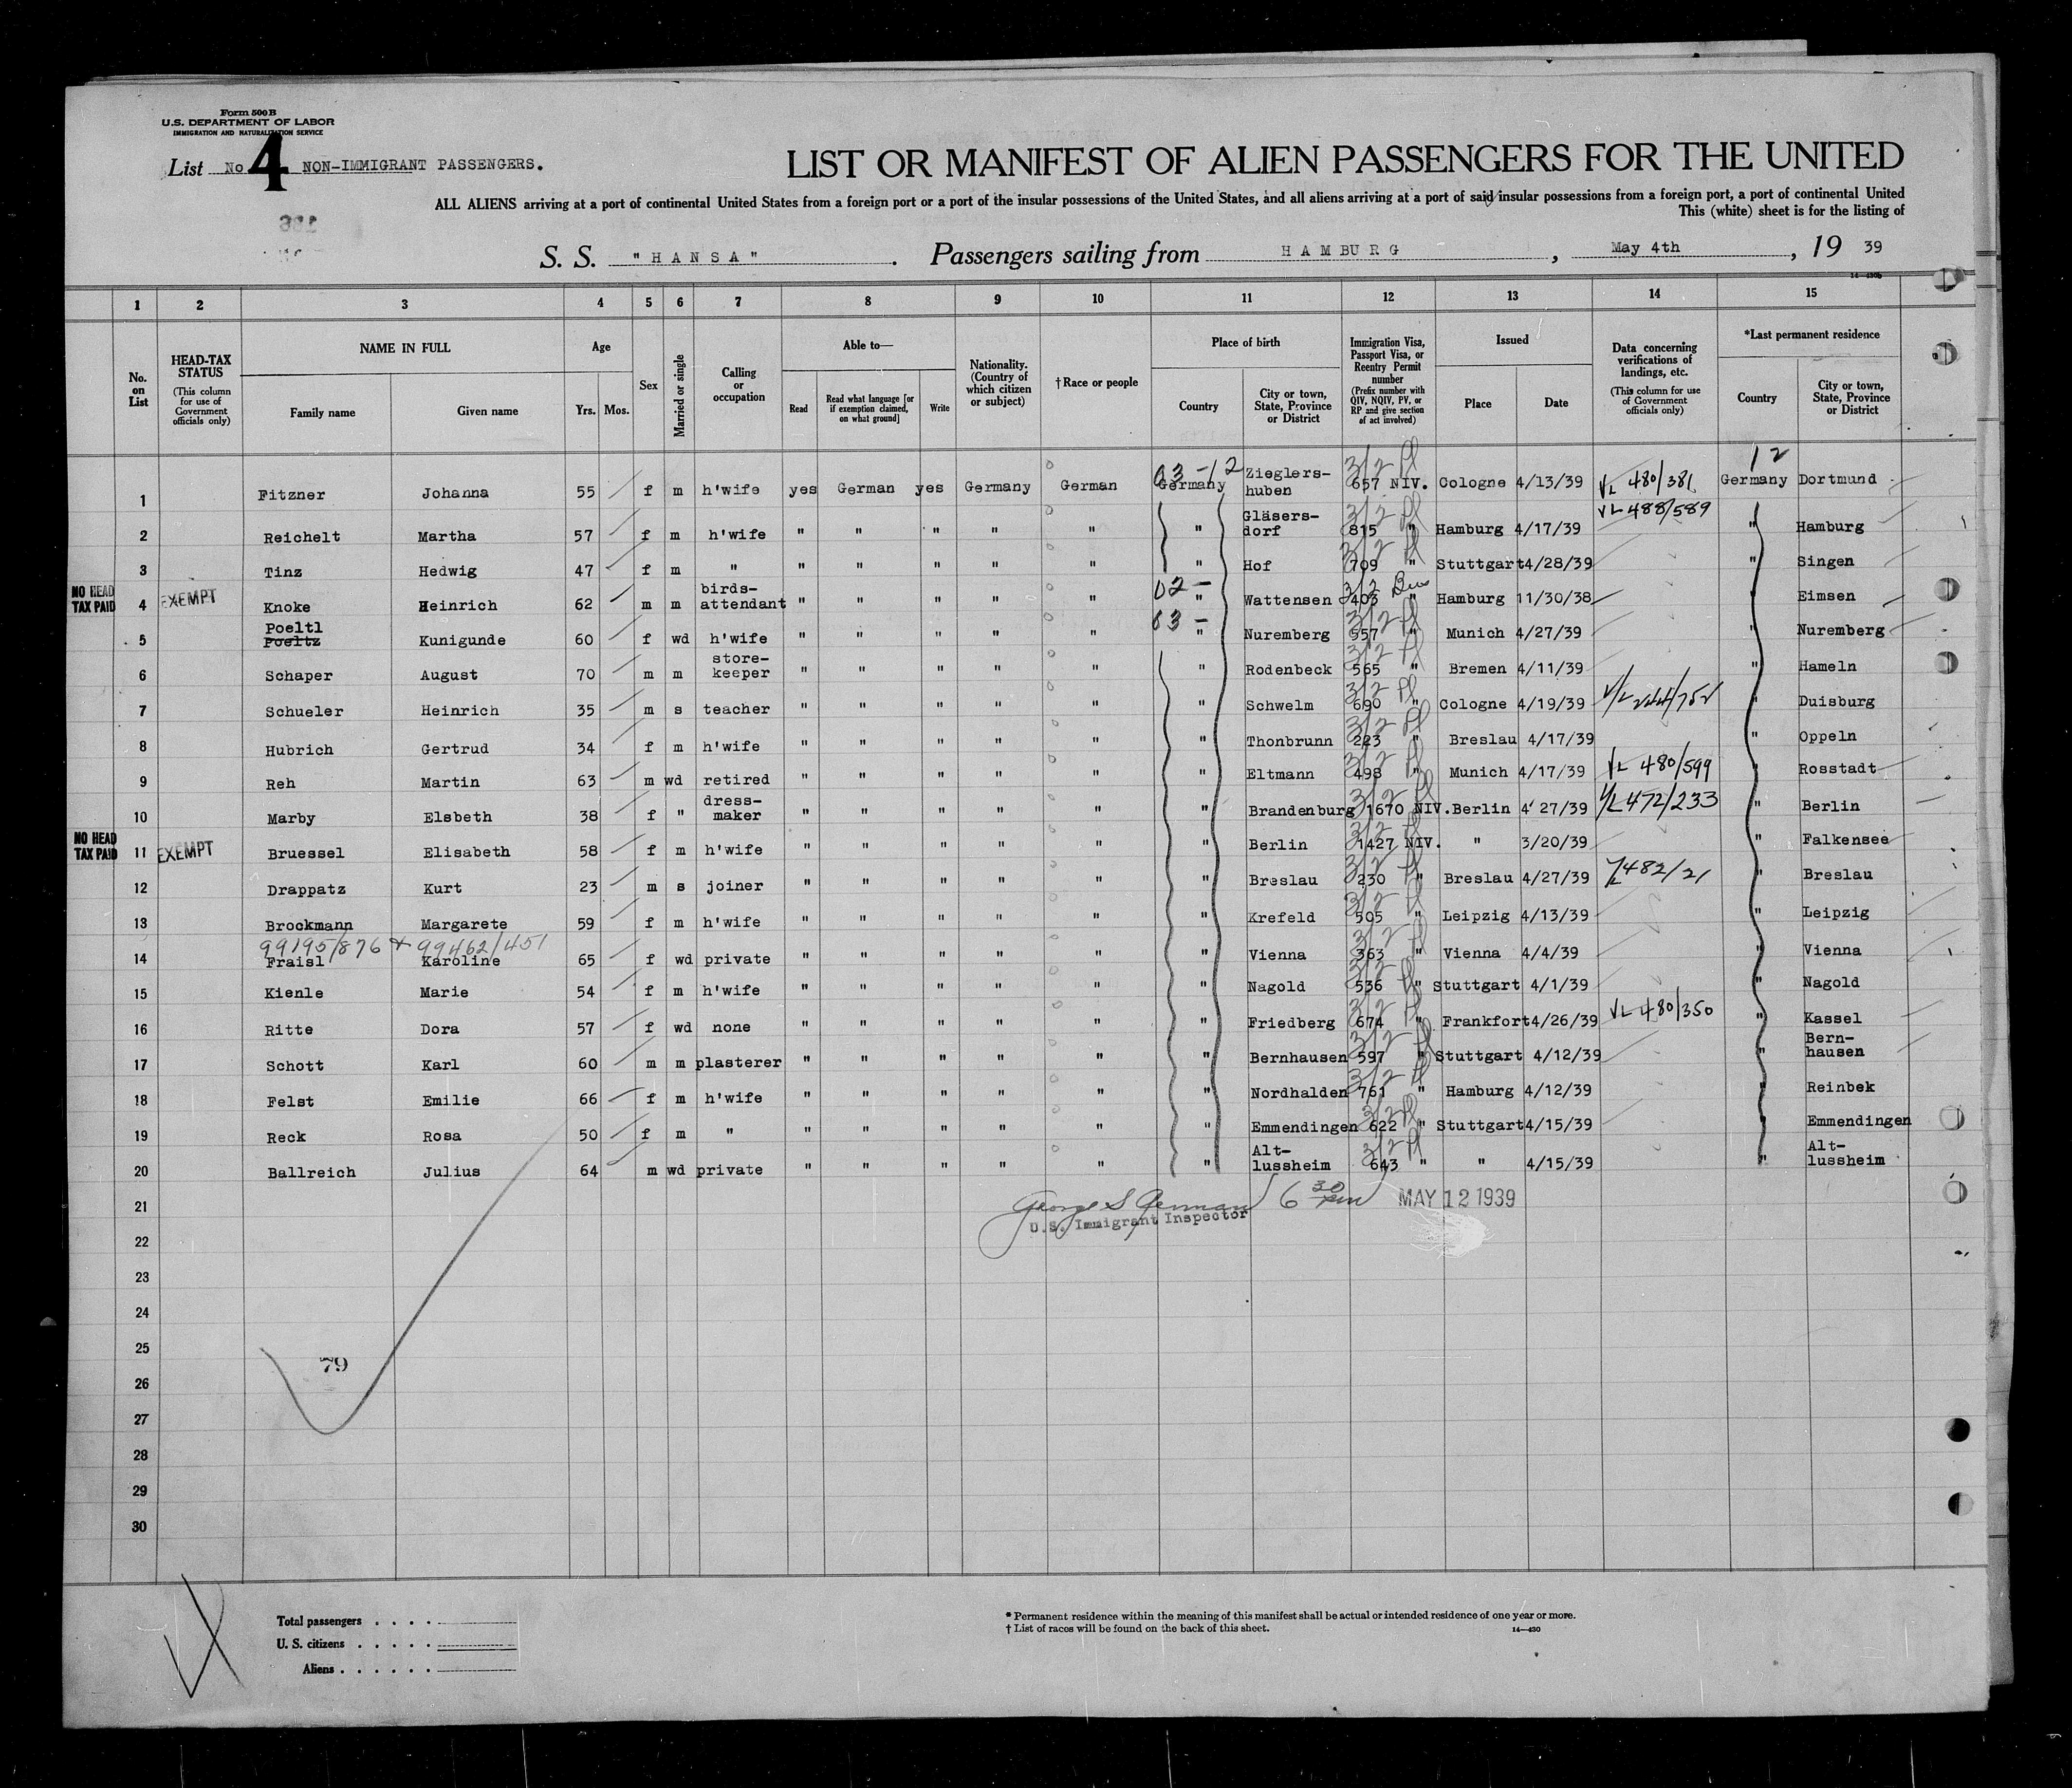 Form 500 B
U.S. DEPARTMENT OF LABOR
IMMIGRATION AND NATURALIZATION SERVICE
List No. 4 NON-IMMIGRANT PASSENGERS.
LIST OR MANIFEST OF ALIEN PASSENGERS FOR THE UNITED
ALL ALIENS arriving at a port of continental United States from a foreign port or a port of the insular possessions of the United States, and all aliens arriving at a port of said insular possessions from a foreign port, a port of continental United
This (white) sheet is for the listing of
S. S. "HANSA". Passengers sailing from HAMBURG, May 4th, 19 39
14—430b
1 2 3 4 5 6 7 8 9 10 11 12 13 14 15
No. on List
HEAD-TAX STATUS (This column for use of Government officials only)
NAME IN FULL Family name Given name
Age Yrs. Mos.
Sex
Married or single
Calling or occupation
Able to— Read Read what language [or if exemption claimed, on what ground] Write
Nationality. (Country of which citizen or subject)
†Race or people
Place of birth Country City or town, State, Province or District
Immigration Visa, Passport Visa, or Reentry Permit number (Prefix number with QIV, NQIV, PV, or RP and give section of act involved)
Issued Place Date
Data concerning verifications of landings, etc. (This column for use of Government officials only)
*Last permanent residence Country City or town, State, Province or District
03 - 12 3/2 12
1 Fitzner Johanna 55 f m h'wife yes German yes Germany German Germany Zieglers-huben 657 NIV. Cologne 4/13/39 VL 480/381 Germany Dortmund
2 Reichelt Martha 57 f m h'wife " " " " " " Gläsers-dorf 3/2 815 " Hamburg 4/17/39 VL 488/589 " Hamburg
3 Tinz Hedwig 47 f m " " " " " " " Hof 3/2 709 " Stuttgart 4/28/39 " Singen
NO HEAD TAX PAID 4 EXEMPT Knoke Heinrich 62 m m birds-attendant " " " " " 02 - " Wattensen 3/2 403 " Hamburg 11/30/38 " Eimsen
5 Poeltl Poeltz Kunigunde 60 f wd h'wife " " " " " 03 - " Nuremberg 3/2 557 " Munich 4/27/39 " Nuremberg
6 Schaper August 70 m m store-keeper " " " " " " Rodenbeck 3/2 565 " Bremen 4/11/39 " Hameln
7 Schueler Heinrich 35 m s teacher " " " " " " Schwelm 3/2 690 " Cologne 4/19/39 " Duisburg
8 Hubrich Gertrud 34 f m h'wife " " " " " " Thonbrunn 3/2 223 " Breslau 4/17/39 " Oppeln
9 Reh Martin 63 m wd retired " " " " " " Eltmann 3/2 498 " Munich 4/17/39 VL 480/599 " Rosstadt
10 Marby Elsbeth 38 f " dress-maker " " " " " " Brandenburg 3/2 1670 NIV. Berlin 4/27/39 VL 472/233 " Berlin
NO HEAD TAX PAID 11 EXEMPT Bruessel Elisabeth 58 f m h'wife " " " " " " Berlin 3/2 1427 NIV. " 3/20/39 " Falkensee
12 Drappatz Kurt 23 m s joiner " " " " " " Breslau 3/2 230 " Breslau 4/27/39 VL 482/21 " Breslau
13 Brockmann Margarete 59 f m h'wife " " " " " " Krefeld 3/2 505 " Leipzig 4/13/39 " Leipzig
99195/876 + 99462/451
14 Fraisl Karoline 65 f wd private " " " " " " Vienna 3/2 363 " Vienna 4/4/39 " Vienna
15 Kienle Marie 54 f m h'wife " " " " " " Nagold 3/2 536 " Stuttgart 4/1/39 " Nagold
16 Ritte Dora 57 f wd none " " " " " " Friedberg 3/2 674 " Frankfort 4/26/39 VL 480/350 " Kassel
17 Schott Karl 60 m m plasterer " " " " " " Bernhausen 3/2 597 " Stuttgart 4/12/39 " Bern-hausen
18 Felst Emilie 66 f m h'wife " " " " " " Nordhalden 3/2 761 " Hamburg 4/12/39 " Reinbek
19 Reck Rosa 50 f m " " " " " " " Emmendingen 3/2 622 " Stuttgart 4/15/39 " Emmendingen
20 Ballreich Julius 64 m wd private " " " " " " Alt-lussheim 3/2 643 " " 4/15/39 " Alt-lussheim
21 George S German 6 30 pm MAY 12 1939
U.S. Immigrant Inspector
22
23
24
25
79
26
27
28
29
30
Total passengers
U. S. citizens
Aliens
* Permanent residence within the meaning of this manifest shall be actual or intended residence of one year or more.
† List of races will be found on the back of this sheet.
14—430